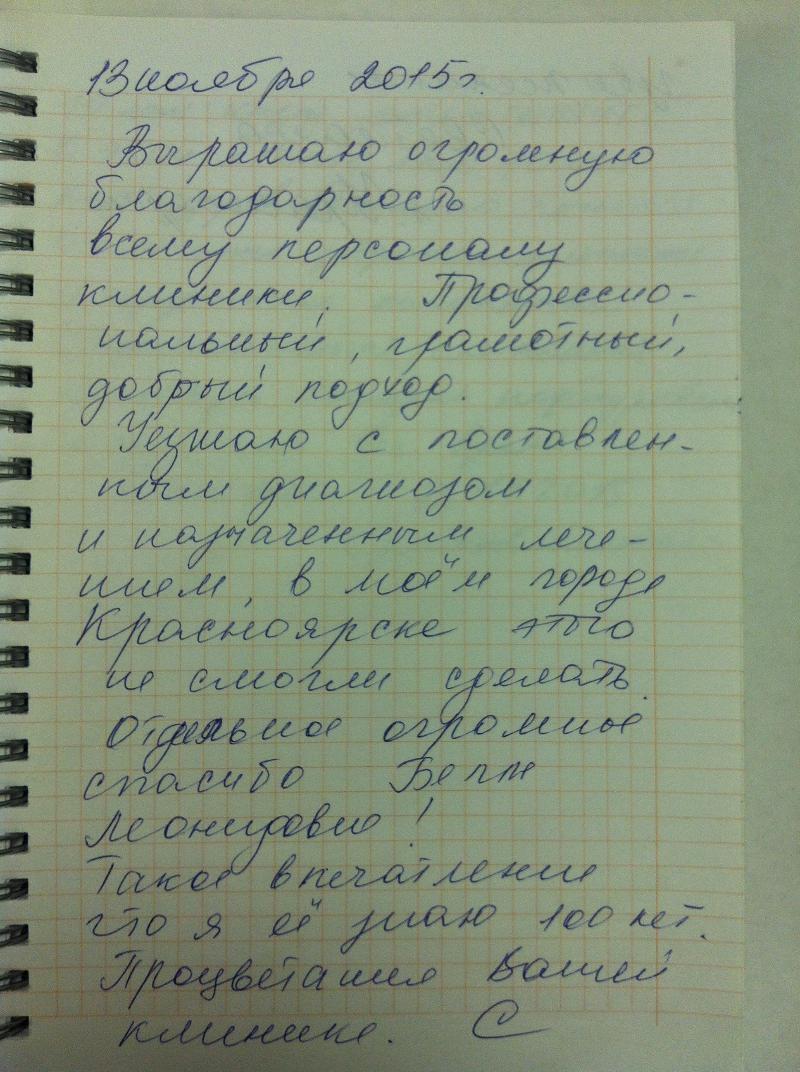 13 ноября 2015г.
Выражаю огромную
благодарность
всему персоналу
клиники. Профессио-
нальный, грамотный,
добрый подход.
Уезжаю с поставлен-
ным диагнозом
и назначенным лече-
нием, в моём городе
Красноярске этого
не смогли сделать.
Отдельное огромное
спасибо Белле
Леонидовне!
Такое впечатление
что я её знаю 100 лет.
Процветания Вашей
клинике. С